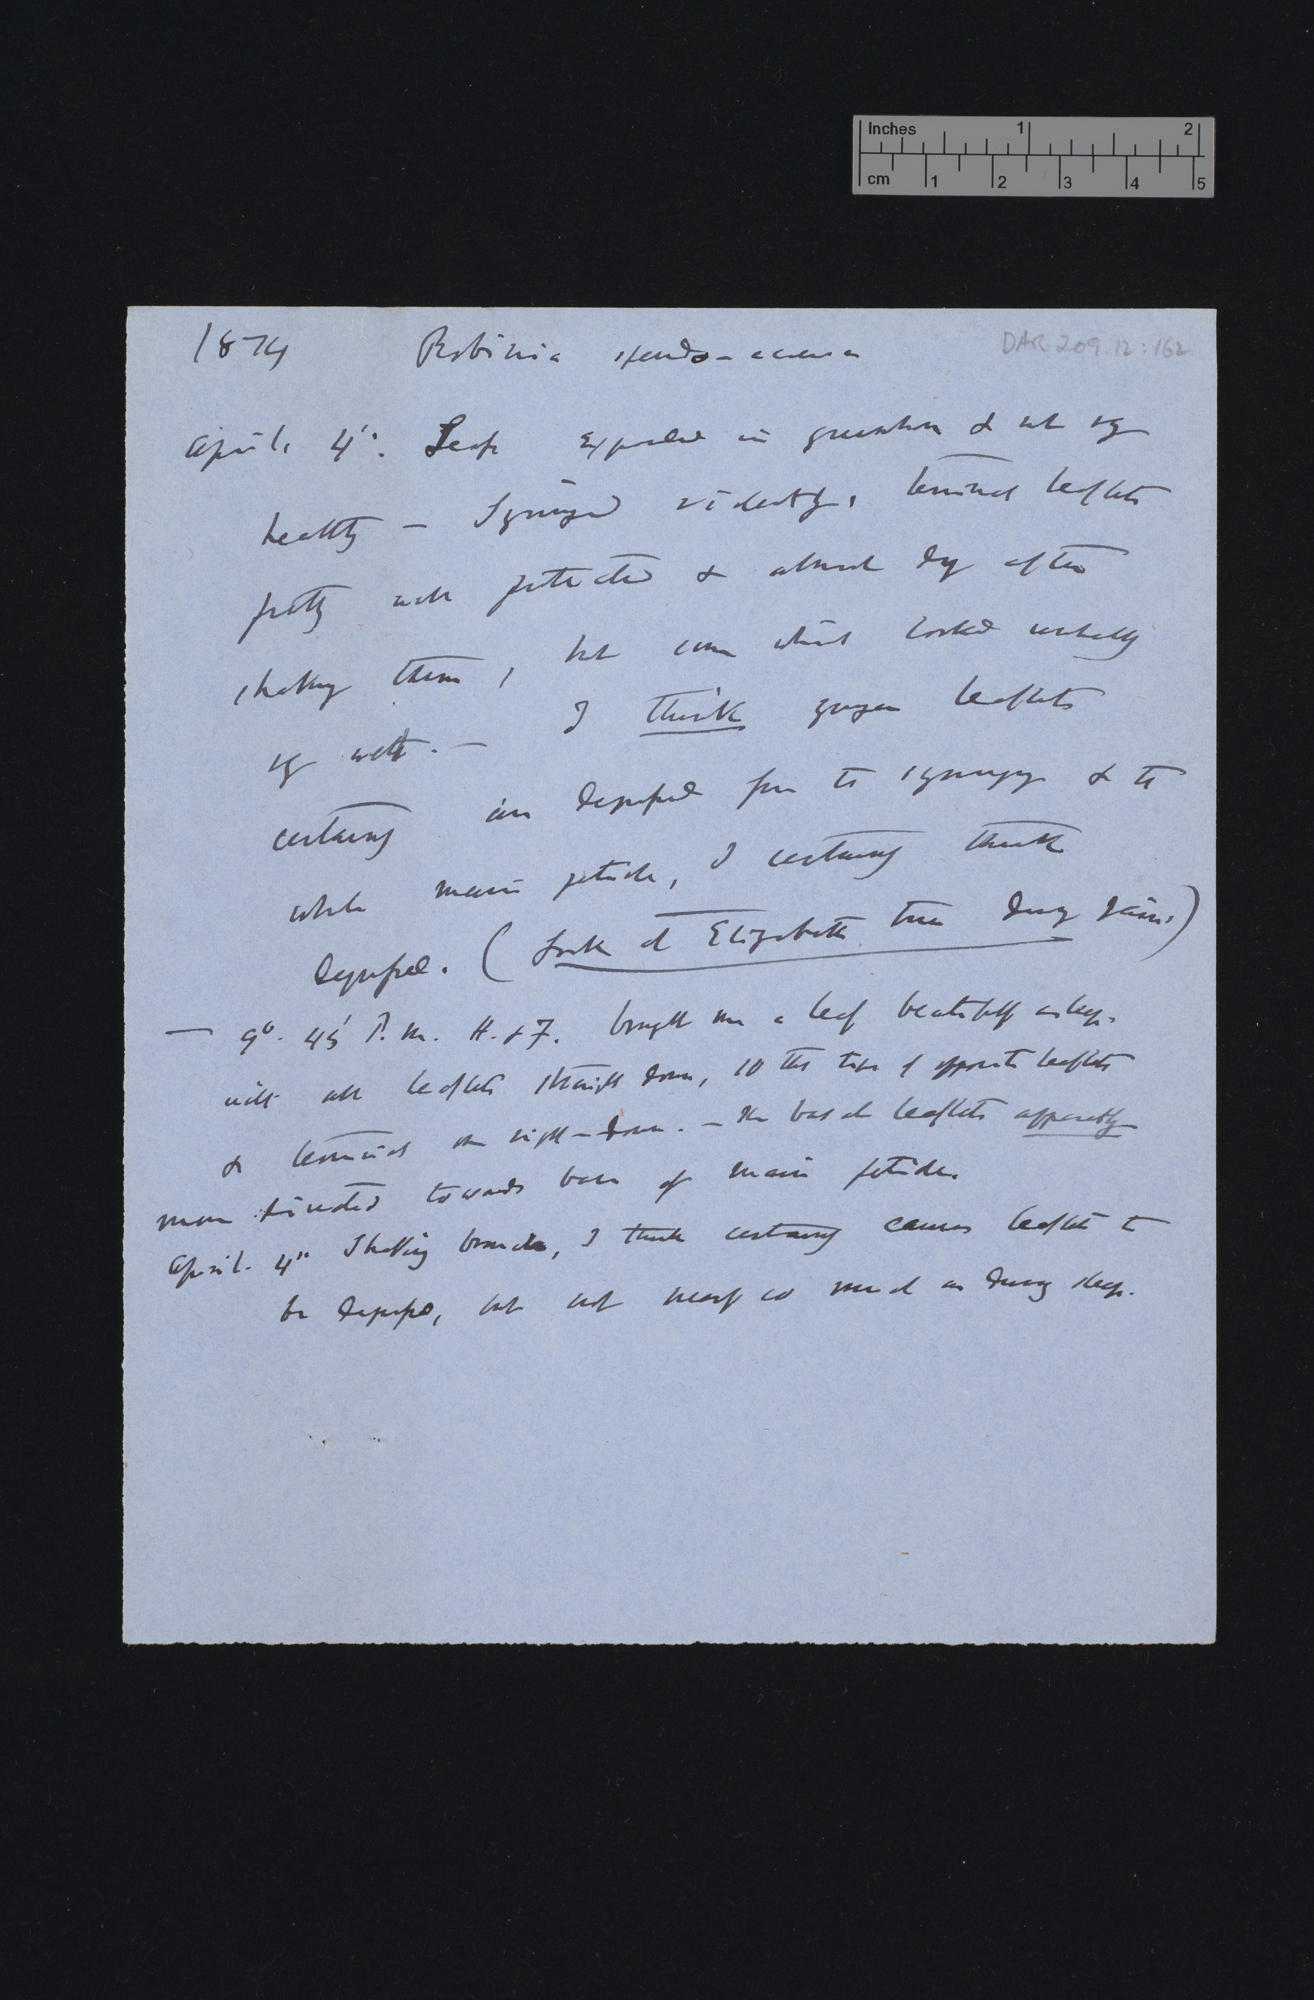 Inches 1 2
cm 1 2 3 4 5
1874 Robinia pseudo-acacia DAR 209.12:162
April 4th. Leaf expanded in greenhouse & not vy
healthy — Syringed violently, terminal leaflets
pretty well protected & almost dry after
shaking them, but some which looked
vy wet. — I think younger leaflets
certainly are depressed from the syringing & the
whole main petiole, I certainly think
depressed. (Look at Elizabeth tree during rain.)
— 9o. 45' P.m. H. & F. brought me a leaf beautifully asleep.
with all leaflets straight down, 10 the two of opposite leaflets
& terminal one right-down. — The basal leaflets apparently
more directed towards base of main petiole.
April. 4th Shaking branch, I think certainly causes leaflets to
be depressed, but not nearly so much as during sleep.